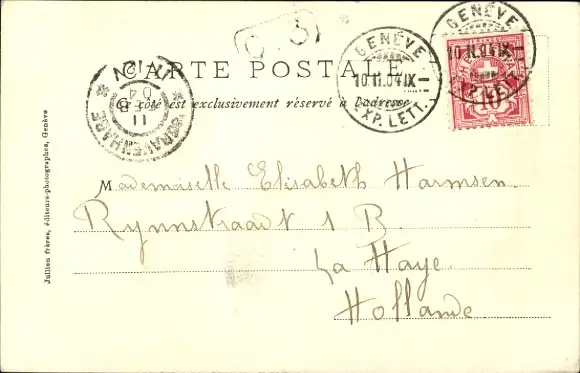 CARTE POSTALE
Ce côté est exclusivement réservé à l'adresse
GENÈVE
10 II.04 IX
EXP. LETT.
GENÈVE
10 II.04 IX
EXP. LETT.
10
'S GRAVENHAGE
11
04
Mademoiselle Elisabeth Harmsen.
Rynnstraadt 1 B.
La Haye.
Hollande
Jullien frères, éditeurs-photographes, Genève